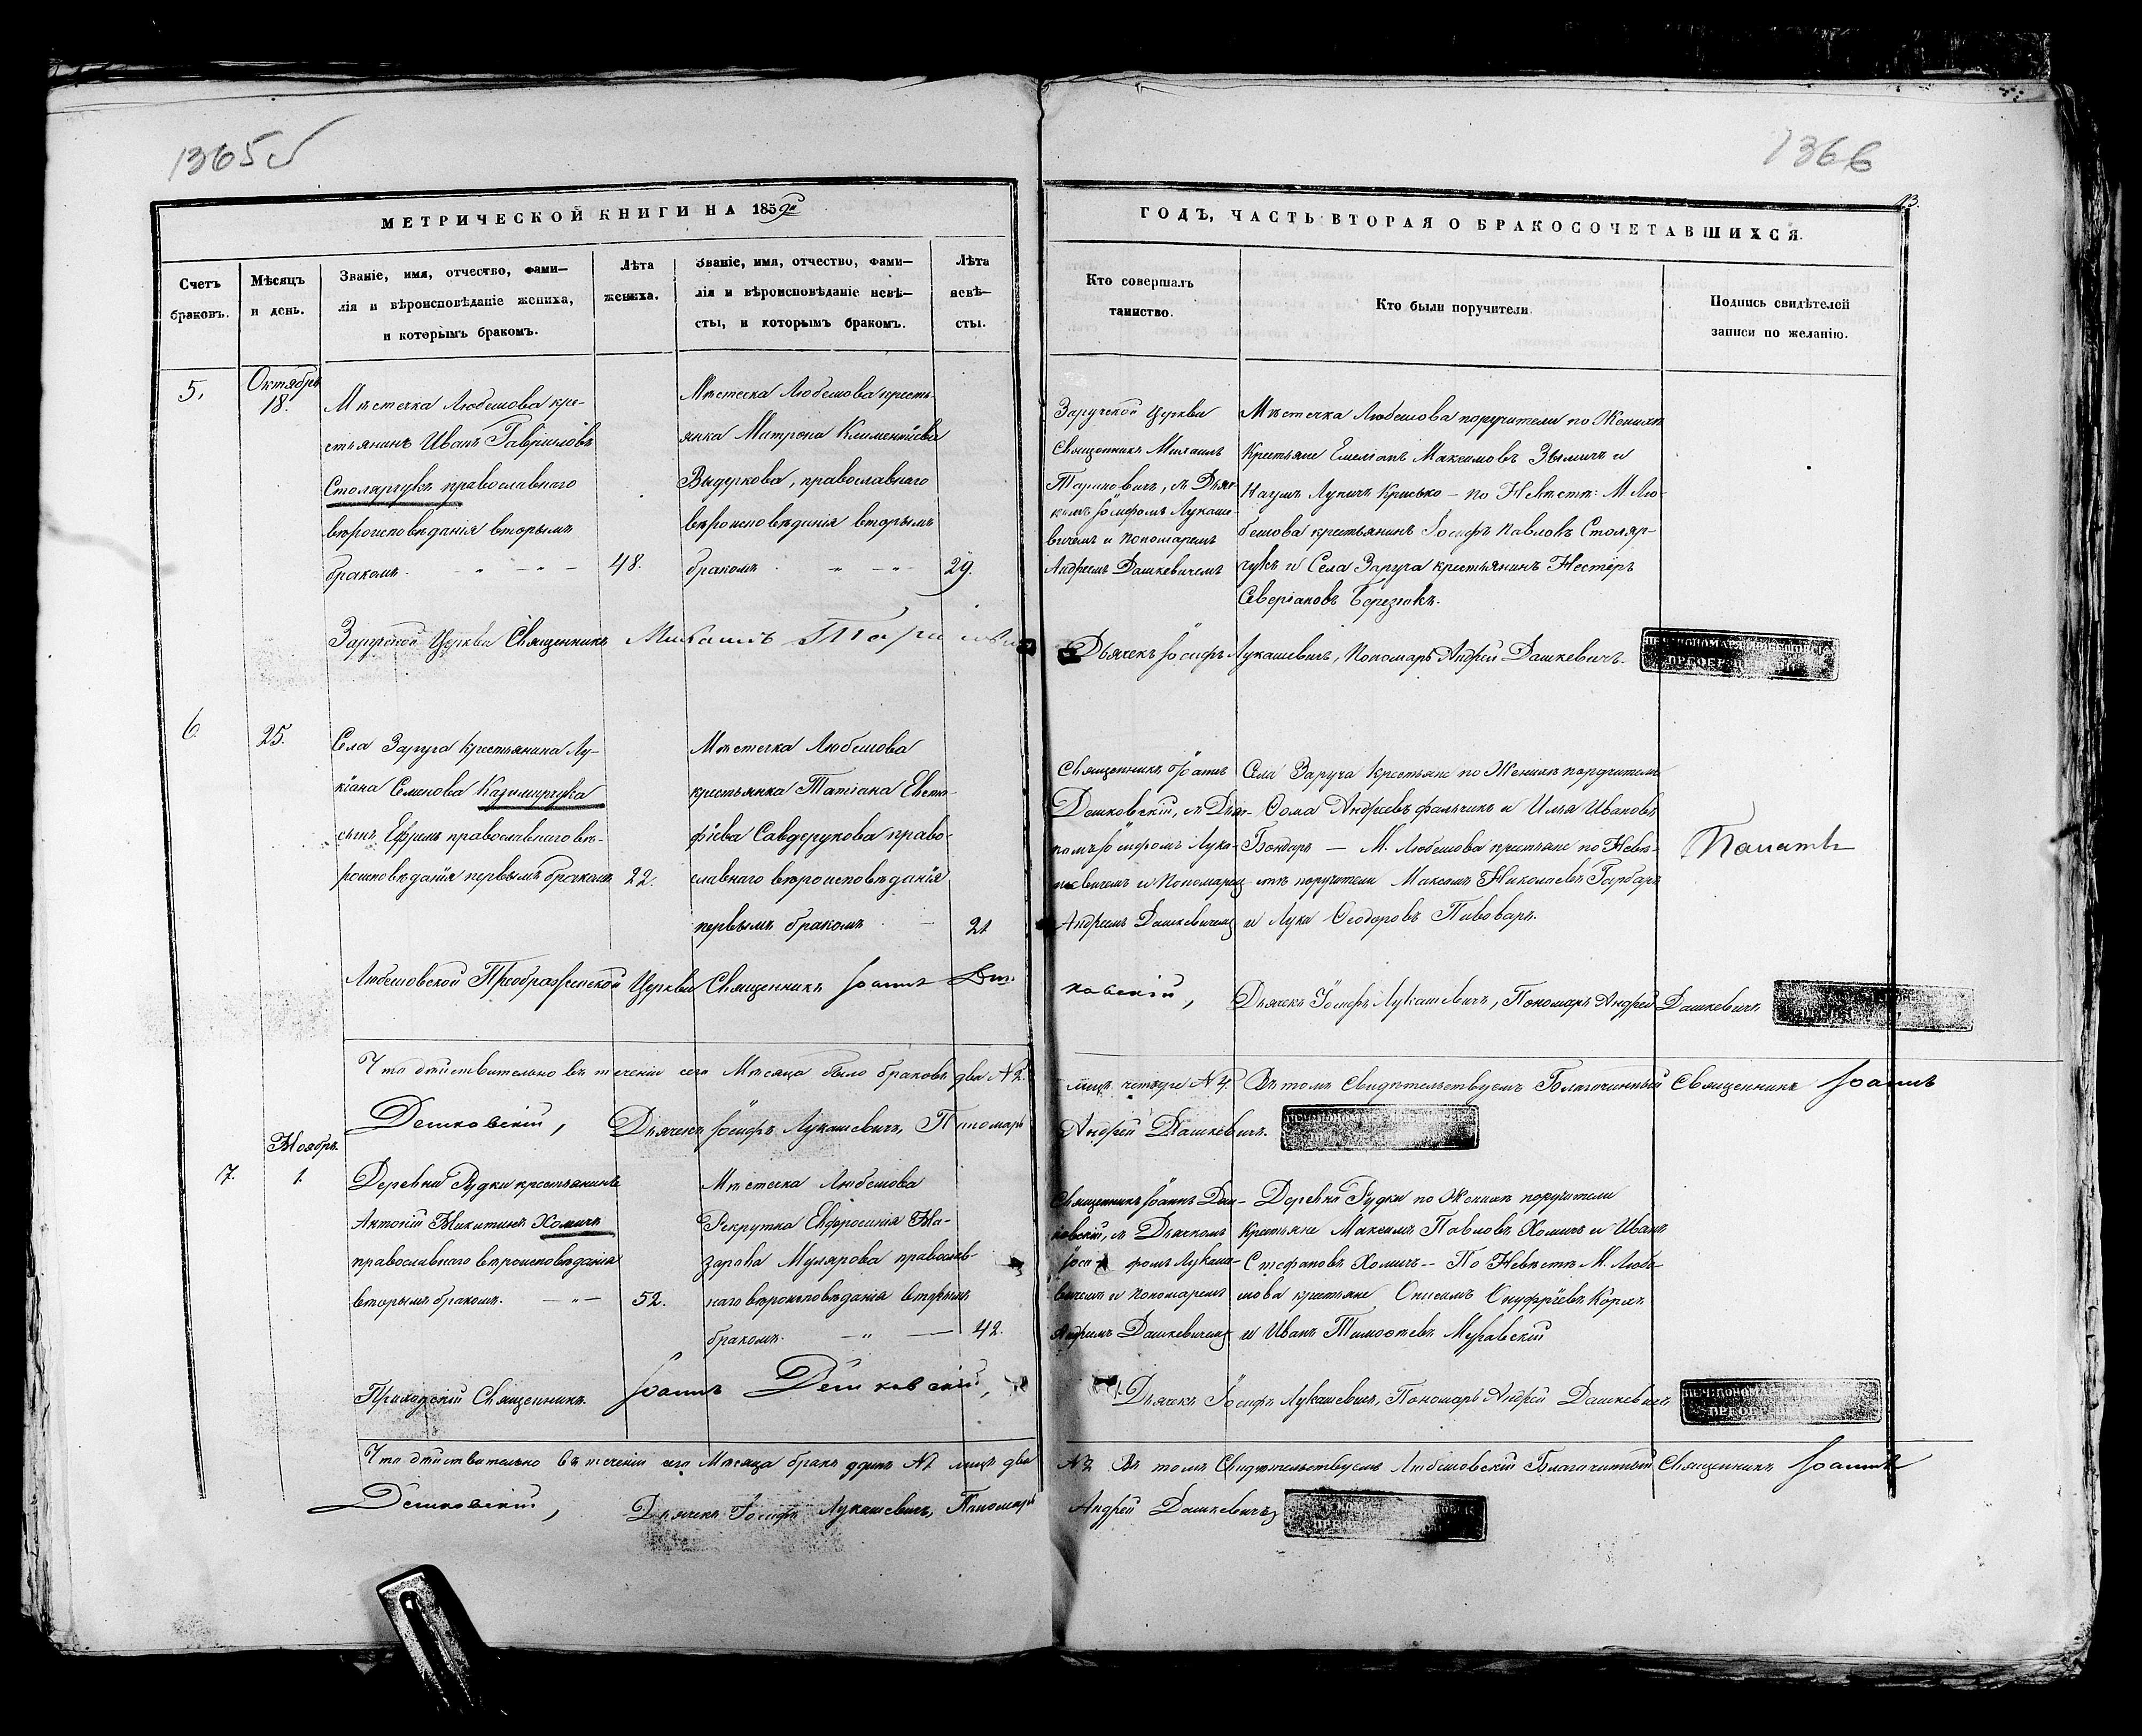 1365
1366
13.
МЕТРИЧЕСКОЙ КНИГИ НА 1859й
ГОДЪ, ЧАСТЬ ВТОРАЯ О БРАКОСОЧЕТАВШИХСЯ.
Счетъ
браковъ.
Мѣсяцъ
и день.
Званіе, имя, отчество, фами—
лія и вѣроисповѣданіе жениха,
и которымъ бракомъ.
Лѣта
жениха.
Званіе, имя, отчество, фами—
лія и вѣроисповѣданіе невѣ—
сты, и которымъ бракомъ.
Лѣта
невѣ—
сты.
Кто совершалъ
таинство.
Кто были поручители
Подпись свидѣтелей
записи по желанію.
5.
Октябрь
18.
Мѣстечка Любешова кре-
стьянинъ Иванъ Гавріиловъ
Столярчукъ православнаго
вѣроисповѣданія вторымъ
бракомъ.
48.
Мѣстечка Любешова кресть-
янка Матрона Климентіева
Выдеркова, православнаго
вѣроисповѣданія вторымъ
бракомъ
29.
Заручской Церкви
Священникъ Михаилъ
съ Дьяч-
комъ Іосифомъ Лукаше-
вичемъ и Пономаремъ
Андреемъ Дашкевичемъ
Мѣстечка Любешова поручители по Женихѣ
Крестьяне Емеліанъ Максимовъ и
Наумъ Крисько — по Невѣстѣ: М. Лю-
бешова крестьянинъ Іосифъ Павловъ Столяр-
чукъ и Села Заруча крестьянинъ Несторъ
Северіановъ Березюкъ.
Заручской Церкви Священникъ Михаилъ
Дьячекъ Іосифъ Лукашевичъ, Пономарь Андрей Дашкевичъ.
6.
25.
Села Заруча Крестьянина Лу-
кіана Семенова Казимирчука
сынъ Ефремъ православнаго вѣ-
роисповѣданія первымъ бракомъ
22.
Мѣстечка Любешова
крестьянка Татіана Евста-
фіева Савдерукова право-
славнаго вѣроисповѣданія
первымъ бракомъ
21
Священникъ Іоаннъ
Дешковскій, съ Дьяч-
комъ Іосифомъ Лука-
шевичемъ и Пономаремъ
Андреемъ Дашкевичемъ
Села Заруча Крестьяне по Женихѣ поручители
Ѳома Андреевъ и Илья Ивановъ
Бондарь — М. Любешова крестьяне по Невѣ-
стѣ поручители Максимъ Николаевъ Гарбаръ
и Лука Ѳеодоровъ Пивоваръ.
Любешовской Преображенской Церкви Священникъ Іоаннъ Деш-
ковскій, Дьячекъ Іосифъ Лукашевичъ, Пономарь Андрей Дашкевичъ
Что дѣйствительно въ теченіи сего Мѣсяца было браковъ два №2.
лицъ четыре №4. Въ томъ Свидѣтельствуемъ Благочинный Священникъ Іоаннъ
Дешковскій, Дьячекъ Іосифъ Лукашевичъ, Пономарь
Андрей Дашкевичъ.
7.
Ноябрь.
1.
Деревни Рудки крестьянинъ
Антоній Никитинъ Хомичъ
православнаго вѣроисповѣданія
вторымъ бракомъ.
52.
Мѣстечка Любешова
Рекрутка Евфросинія На-
зарова Мулярова православ-
наго вѣроисповѣданія вторымъ
бракомъ.
42.
Священникъ Іоаннъ Деш-
ковскій, съ Дьячкомъ
Іосифомъ Лукаше-
вичемъ и Пономаремъ
Андреемъ Дашкевичемъ
Деревни Рудки по Женихѣ поручители
Крестьяне Максимъ Павловъ Хомичъ и Иванъ
Стефановъ Хомичъ — По Невѣстѣ М. Любе-
шова крестьяне Онисимъ Онуфріевъ
и Иванъ Тимоѳеевъ Муравскій
Приходскій Священникъ Іоаннъ Дешковскій,
Дьячекъ Іосифъ Лукашевичъ, Пономарь Андрей Дашкевичъ
Что дѣйствительно въ теченіи сего Мѣсяца бракъ одинъ №1 лицъ два
№2 Въ томъ Свидѣтельствуемъ Любешовскій Благочинный Священникъ Іоаннъ
Дешковскій, Дьячекъ Іосифъ Лукашевичъ, Пономарь
Андрей Дашкевичъ